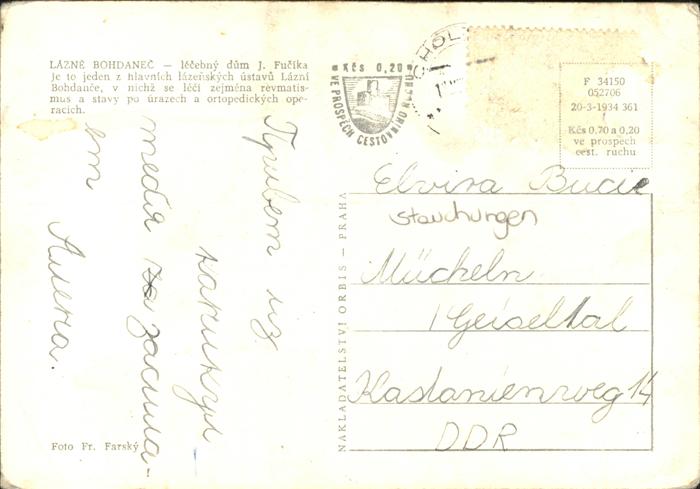 LÁZNĚ BOHDANEČ — léčebný dům J. Fučíka
Je to jeden z hlavních lázeňských ústavů Lázní
Bohdanče, v nichž se léčí zejména revmatis-
mus a stavy po úrazech a ortopedických ope-
racích.
Kčs 0,20
VE PROSPĚCH CESTOVNÍHO RUCHU
F 34150
052706
20-3-1934 361
Kčs 0,70 a 0,20
ve prospěch
cest. ruchu
Привет из
каникул
тебя
засыла-
ет
Алена.
Elvira
stauchungen
Mücheln
/Geiseltal
Kastanienweg 14
DDR
NAKLADATELSTVÍ ORBIS — PRAHA
Foto Fr. Farský